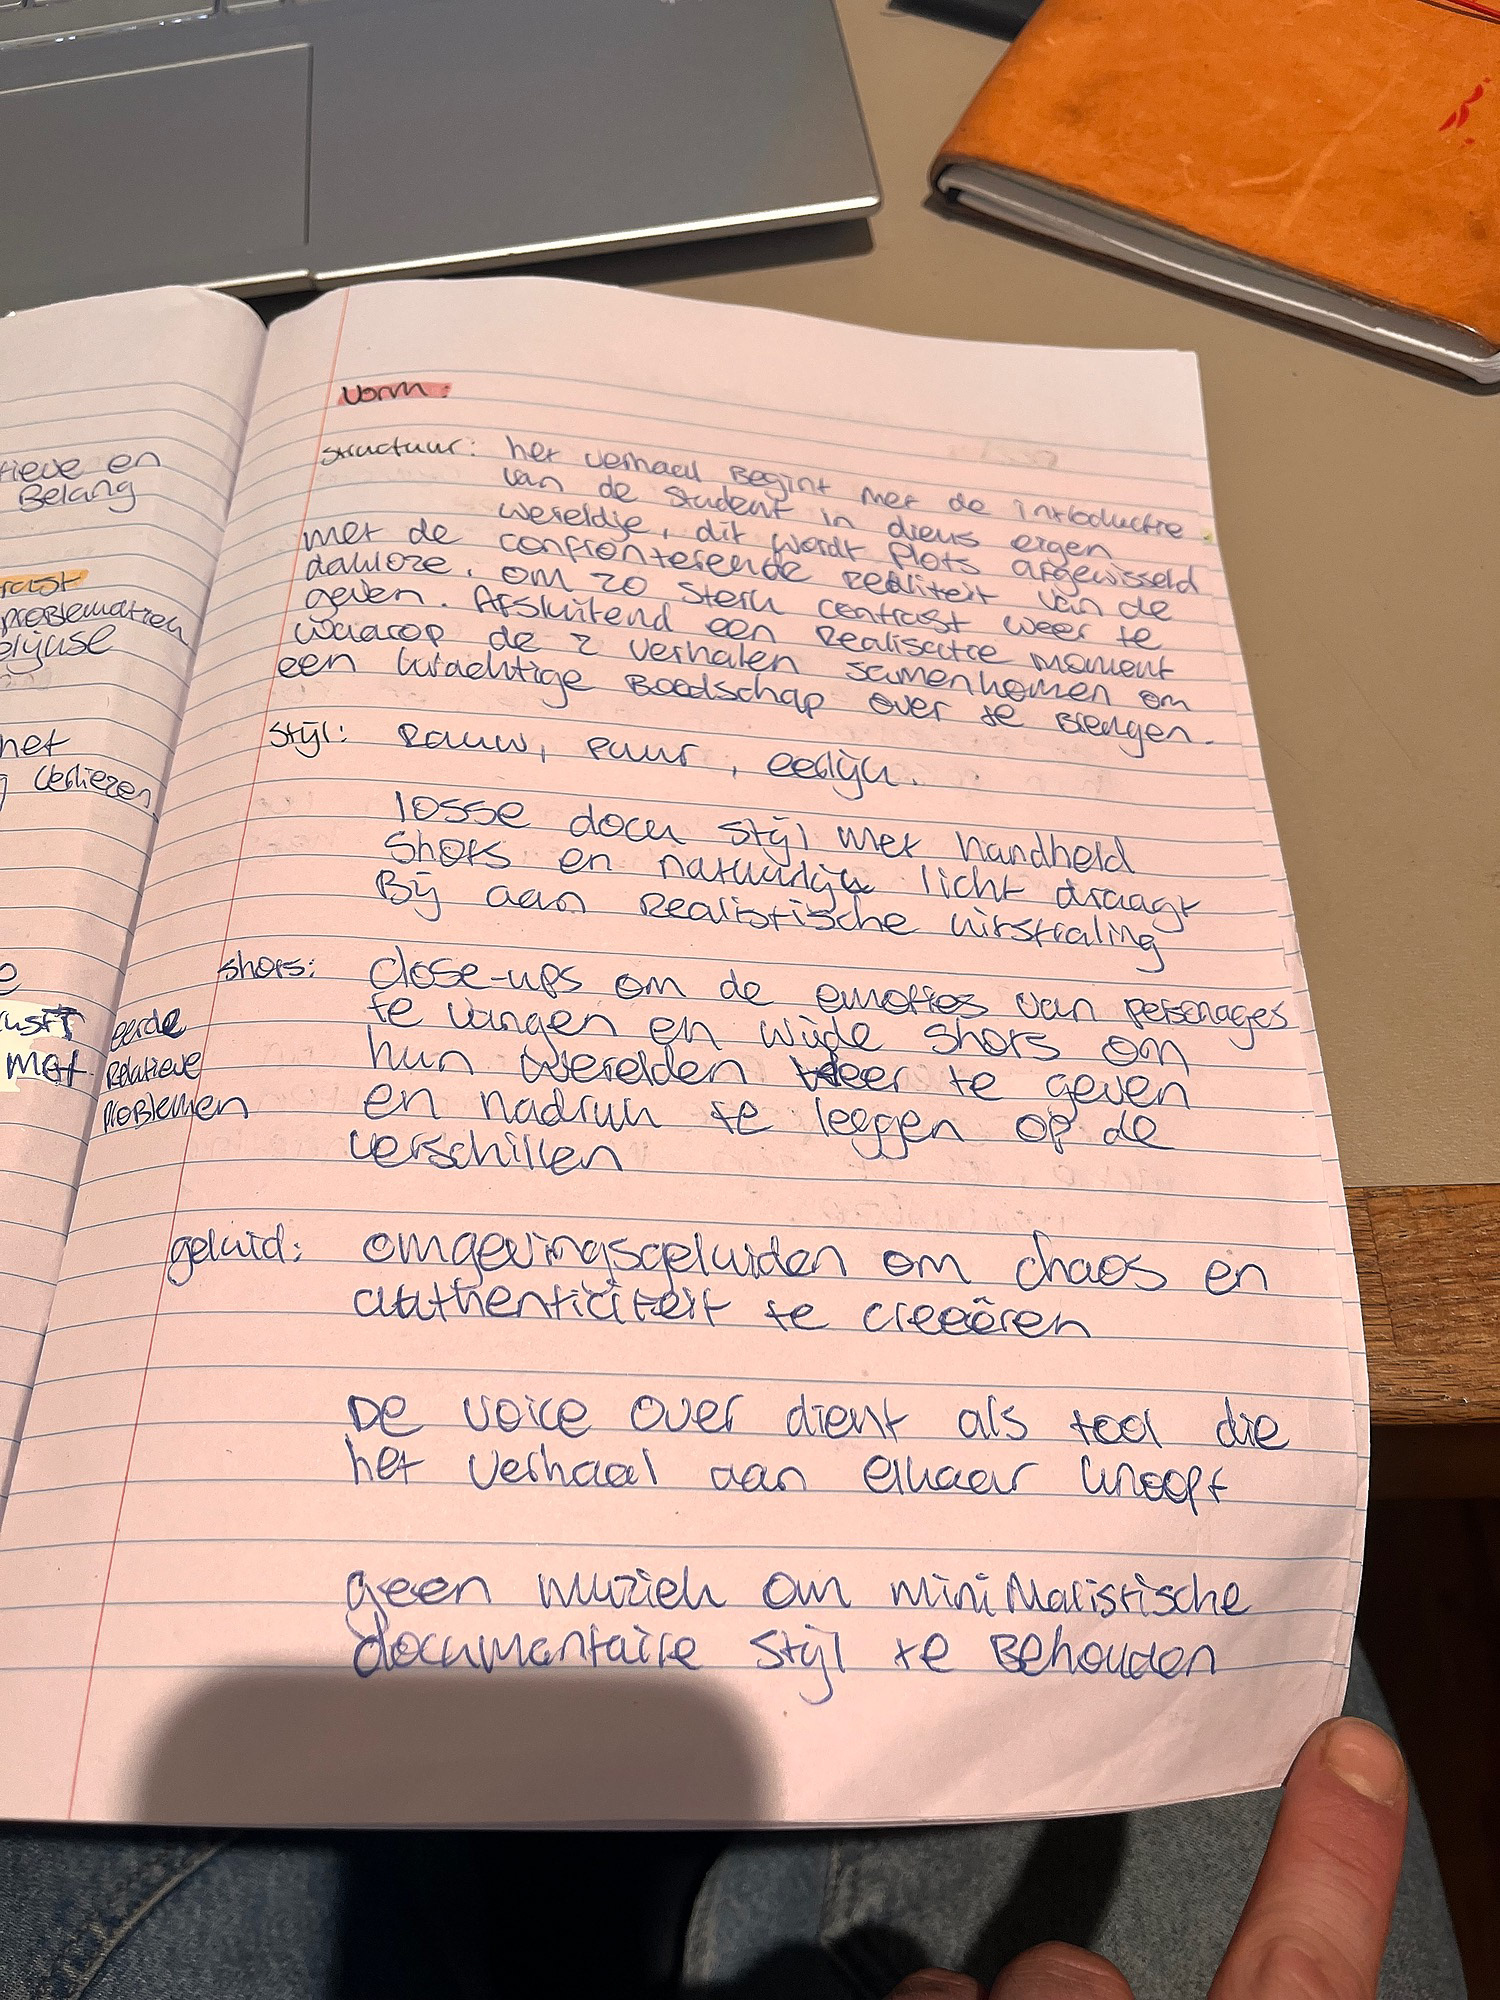 tieve en
Belang
rast
problematiek
elijkse
het
verliezen
e
eerde
met relatieve
problemen
Vorm:
structuur: het verhaal Begint met de introductie
van de student in diens eigen
wereldje, dit wordt plots afgewisseld
met de confronterende realiteit van de
dakloze. om zo sterk contrast weer te
geven. Afsluitend een Realisatie moment
waarop de 2 verhalen samenkomen om
een krachtige Boodschap over te Brengen.
stijl: Rauw, puur, eerlijk.
losse docu stijl met handheld
shots en natuurlijk licht draagt
Bij aan realistische uitstraling
shots: close-ups om de emoties van personages
te vangen en wijde shots om
hun werelden weer te geven
en nadruk te leggen op de
verschillen
geluid: omgevingsgeluiden om chaos en
authenticiteit te creeëren
De voice over dient als tool die
het verhaal aan elkaar knoopt
geen muziek om minimalistische
documentaire stijl te Behouden